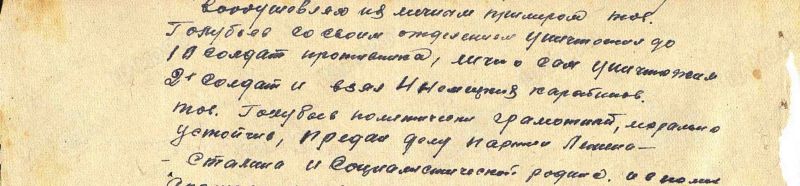 Воодушевляя их личным примером тов.
Голубьев со своим отделением уничтожил до
10 солдат противника, лично сам уничтожил
2х солдат и взял 4 немецких карабинов.
тов. Голубьев политически грамотный, морально
устойчив, предан делу партии Ленина –
– Сталина и социалистической родине.